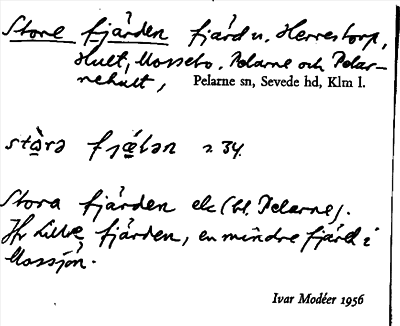 Store fjärden fjärd u. Herrestorp,
Hult, Mossebo, Pelarne och Pelar-
nehult, Pelarne sn, Sevede hd, Klm l.
34.
Stora fjärden ek (bl. Pelarne).
Jfr Lilla fjärden, en mindre fjärd i
Mossjön.
Ivar Modéer 1956